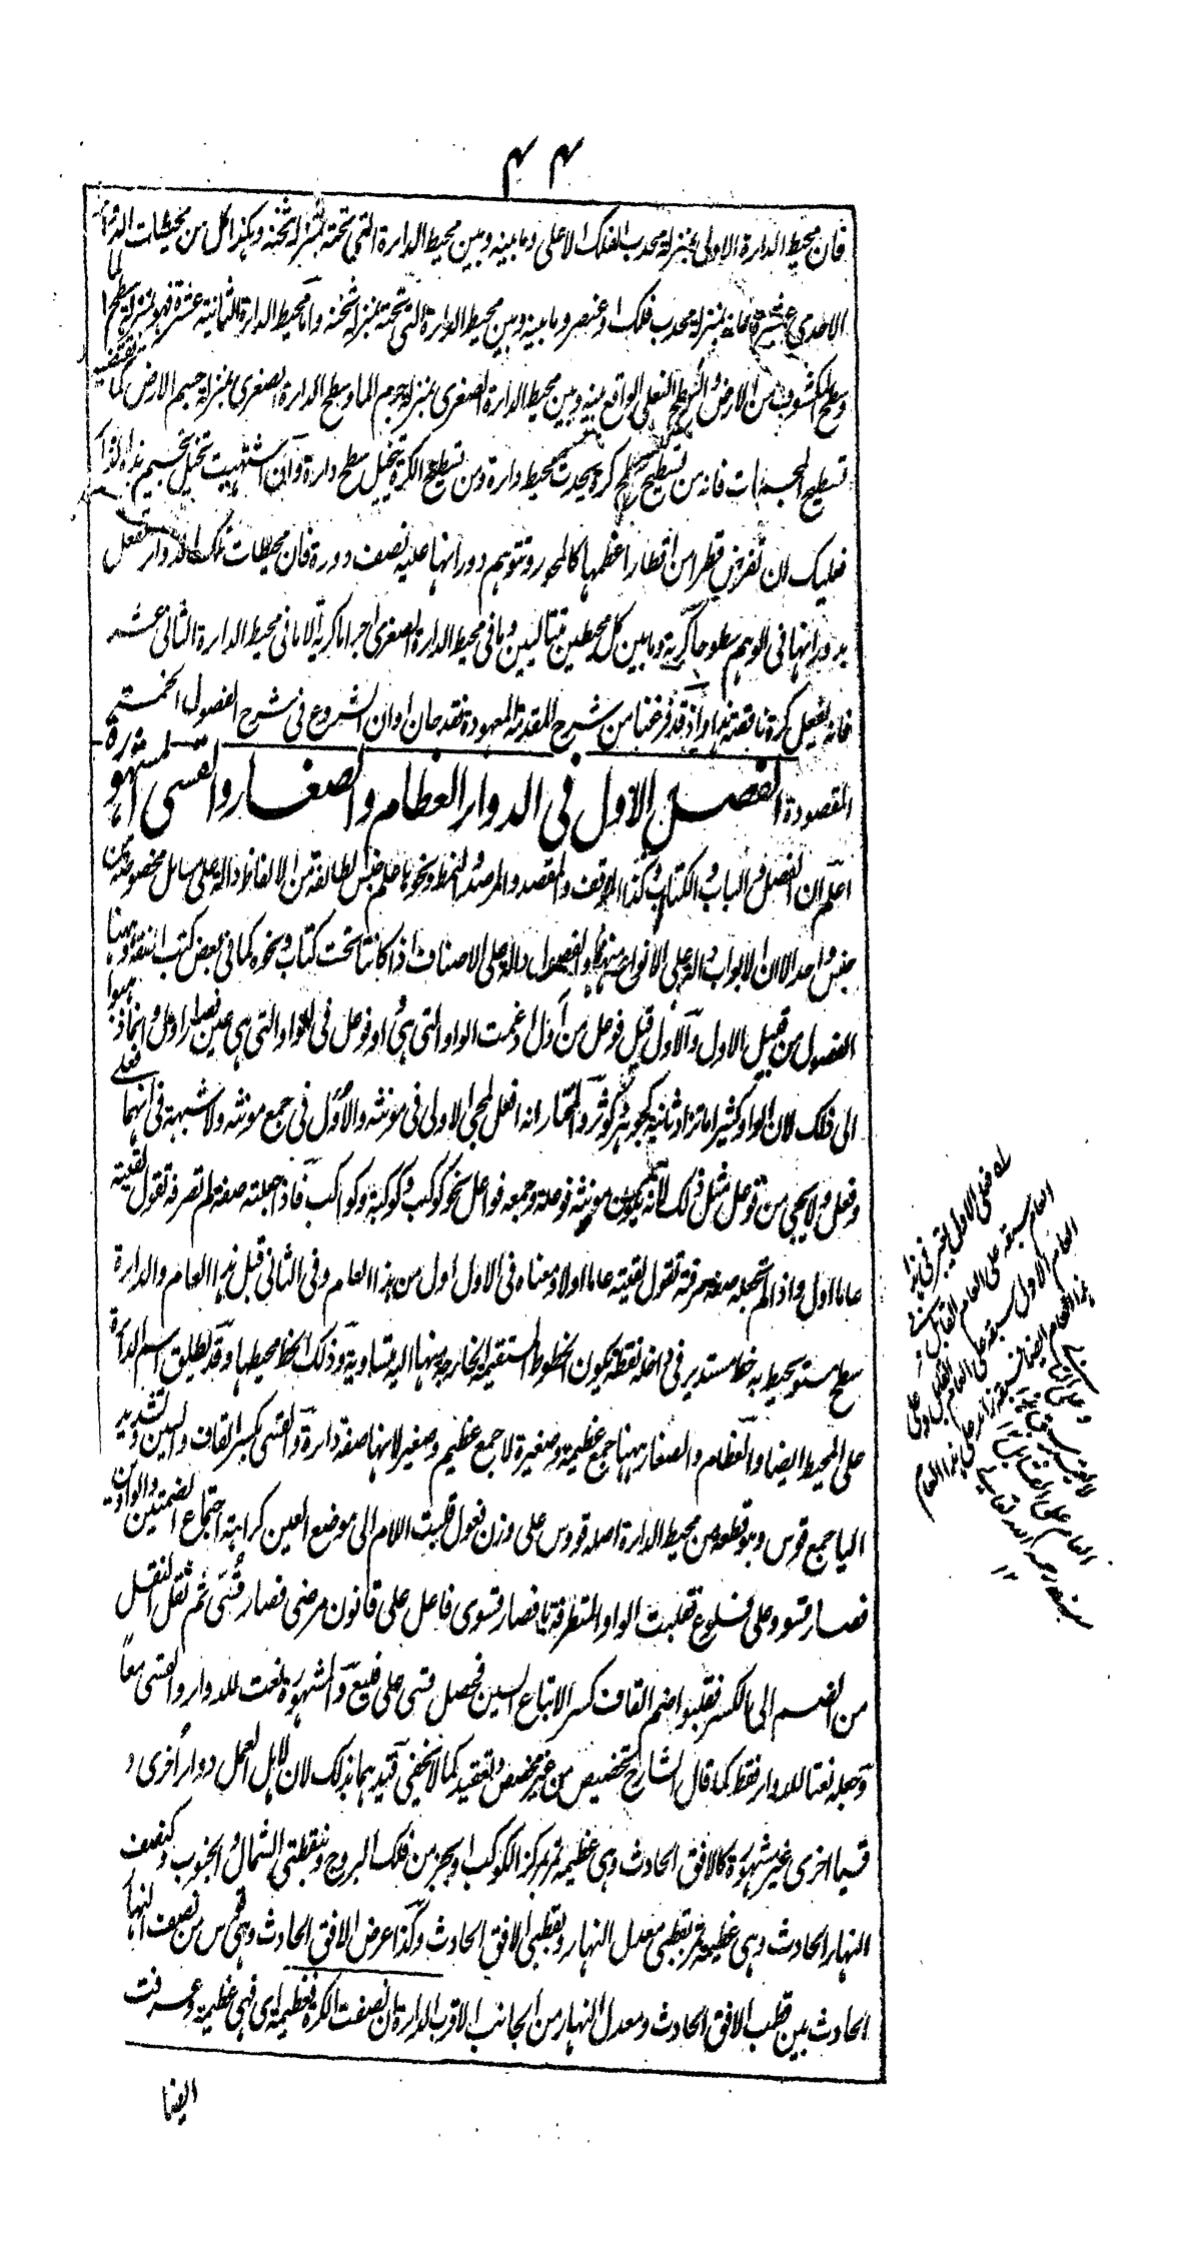 ۴۴
فان محيط الدائرة الاولى بمنزلة محدب الفلك الاعلى وما بينه وبين محيط الدائرة التى تحته بمنزلة ثخنه وهكذا كل من محيطات الدوائر
الاحدى عشرة فانه بمنزلة محدب فلك او عنصر وما بينه وبين محيط الدائرة التى تحته بمنزلة ثخنه واما محيط الدائرة الثانية عشرة فهو بمنزلة سطح الما
وسطح المكشوف من الارض والسطح التعلى الواقع بينه وبين محيط الدائرة الصغرى بمنزلة جرم الما وسطح الدائرة الصغرى بمنزلة جسم الارض كما يقتضيه
تسطيح المجسمات فانه من تسطيح سطح كرة يحدث محيط دائرة ومن تسطيح الكرة يتخيل سطح دائرة وان اشتهيت تخيل تجسيم هذه الدوائر
فعليك ان تفرض قطرا من اقطار اعظمها كالمحور وتتوهم دورانها عليه نصف دورة فان محيطات تلك الدوائر تفعل
بدورانها فى الوهم سطوحا كرية وما بين كل محيطين متتاليين وما فى محيط الدائرة الصغرى اجراما كرية الا ما فى محيط الدائرة الثانى عشر
فانه يفعل كرة ناقصة هذا واذ قد فرغنا من شرح المقدمة المعهودة فقد حان اوان الشروع فى شرح الفصول الخمسة
المقصودة الفصل الاول فى الدوائر العظام والصغار والقسى المشهورة
اعلم ان الفصل والباب والكتاب وكذا الموقف والمقصد والمرصد والنمط ونحوها علم جنس لطائفة من الالفاظ دالة على مسائل مخصوصة من
جنس واحد الا ان الابواب دالة على الانواع منها والفصول دالة على الاصناف اذا كانتا تحت كتاب ونحوه كما فى بعض كتب الفقه وههنا
الفصول من قبيل الاول والاول قيل فوعل من اول ادغمت الواو التى هى واو فوعل فى الواو التى هى عين فصار اول وانما ذهبوا
الى ذلك لان الواو كثيرا ما تزاد ثانية كجوهر وكوثر والمختار انه افعل لمجئ الاولى فى مونثه والاول فى جمع مونثه ولا شبهة فى انهما فعلى
وفعل ولا يجئ من فوعل مثل ذلك لانه يكون مونثه فوعلة وجمعه فواعل نحو كوكب وكوكبة وكواكب فاذا جعلته صفة لم تصرفه تقول لقيته
عاما اول واذا لم تجعله صفة صرفته تقول لقيته عاما اولا ومعناه فى الاول اول من هذا العام وفى الثانى قبل هذا العام والدائرة
سطح مستو يحيط به خط مستدير فى داخله نقطة يكون الخطوط المستقيمة الخارجة منها اليه متساوية وذلك الخط محيطها وقد يطلق اسم الدائرة
على المحيط ايضا والعظام والصغار ههنا جمع عظيمة وصغيرة لا جمع عظيم وصغير لانها صفة دائرة والقسى بكسر القاف والسين وتشديد
اليا جمع قوس وهو قطعة من محيط الدائرة اصله قووس على وزن فعول قلبت اللام الى موضع العين كراهية اجتماع الضمتين والواوين
فصار قسوو على فلوع فقلبت الواو المتطرفة يا فصار قسوى فاعل على قانون مرضى فصار قسى ثم ثقل النقل
من الضم الى الكسر فقلبوا ضم القاف كسرا لاتباع السين فحصل قسى على فليع والمشهورة نعت للدوائر والقسى معا
وجعله نعتا للدوائر فقط كما قال الشارح تخصيص من غير مخصص وتعقيد كما لا يخفى قيدهما بذلك لان لاهل العمل دوائر اخرى و
قسيا اخرى غير مشهورة كالافق الحادث وهى عظيمة تمر بمركز الكوكب او بجزء من فلك البروج وبنقطتى الشمال والجنوب وكنصف
النهار الحادث وهى عظيمة تمر بقطبى معدل النهار وبقطبى الافق الحادث وكذا عرض الافق الحادث وهى قوس من نصف النهار
الحادث بين قطب الافق الحادث ومعدل النهار من الجانب الاقرب الدائرة ان نصفت الكرة فعظيمة اى فهى عظيمة وعرفت
ايضا